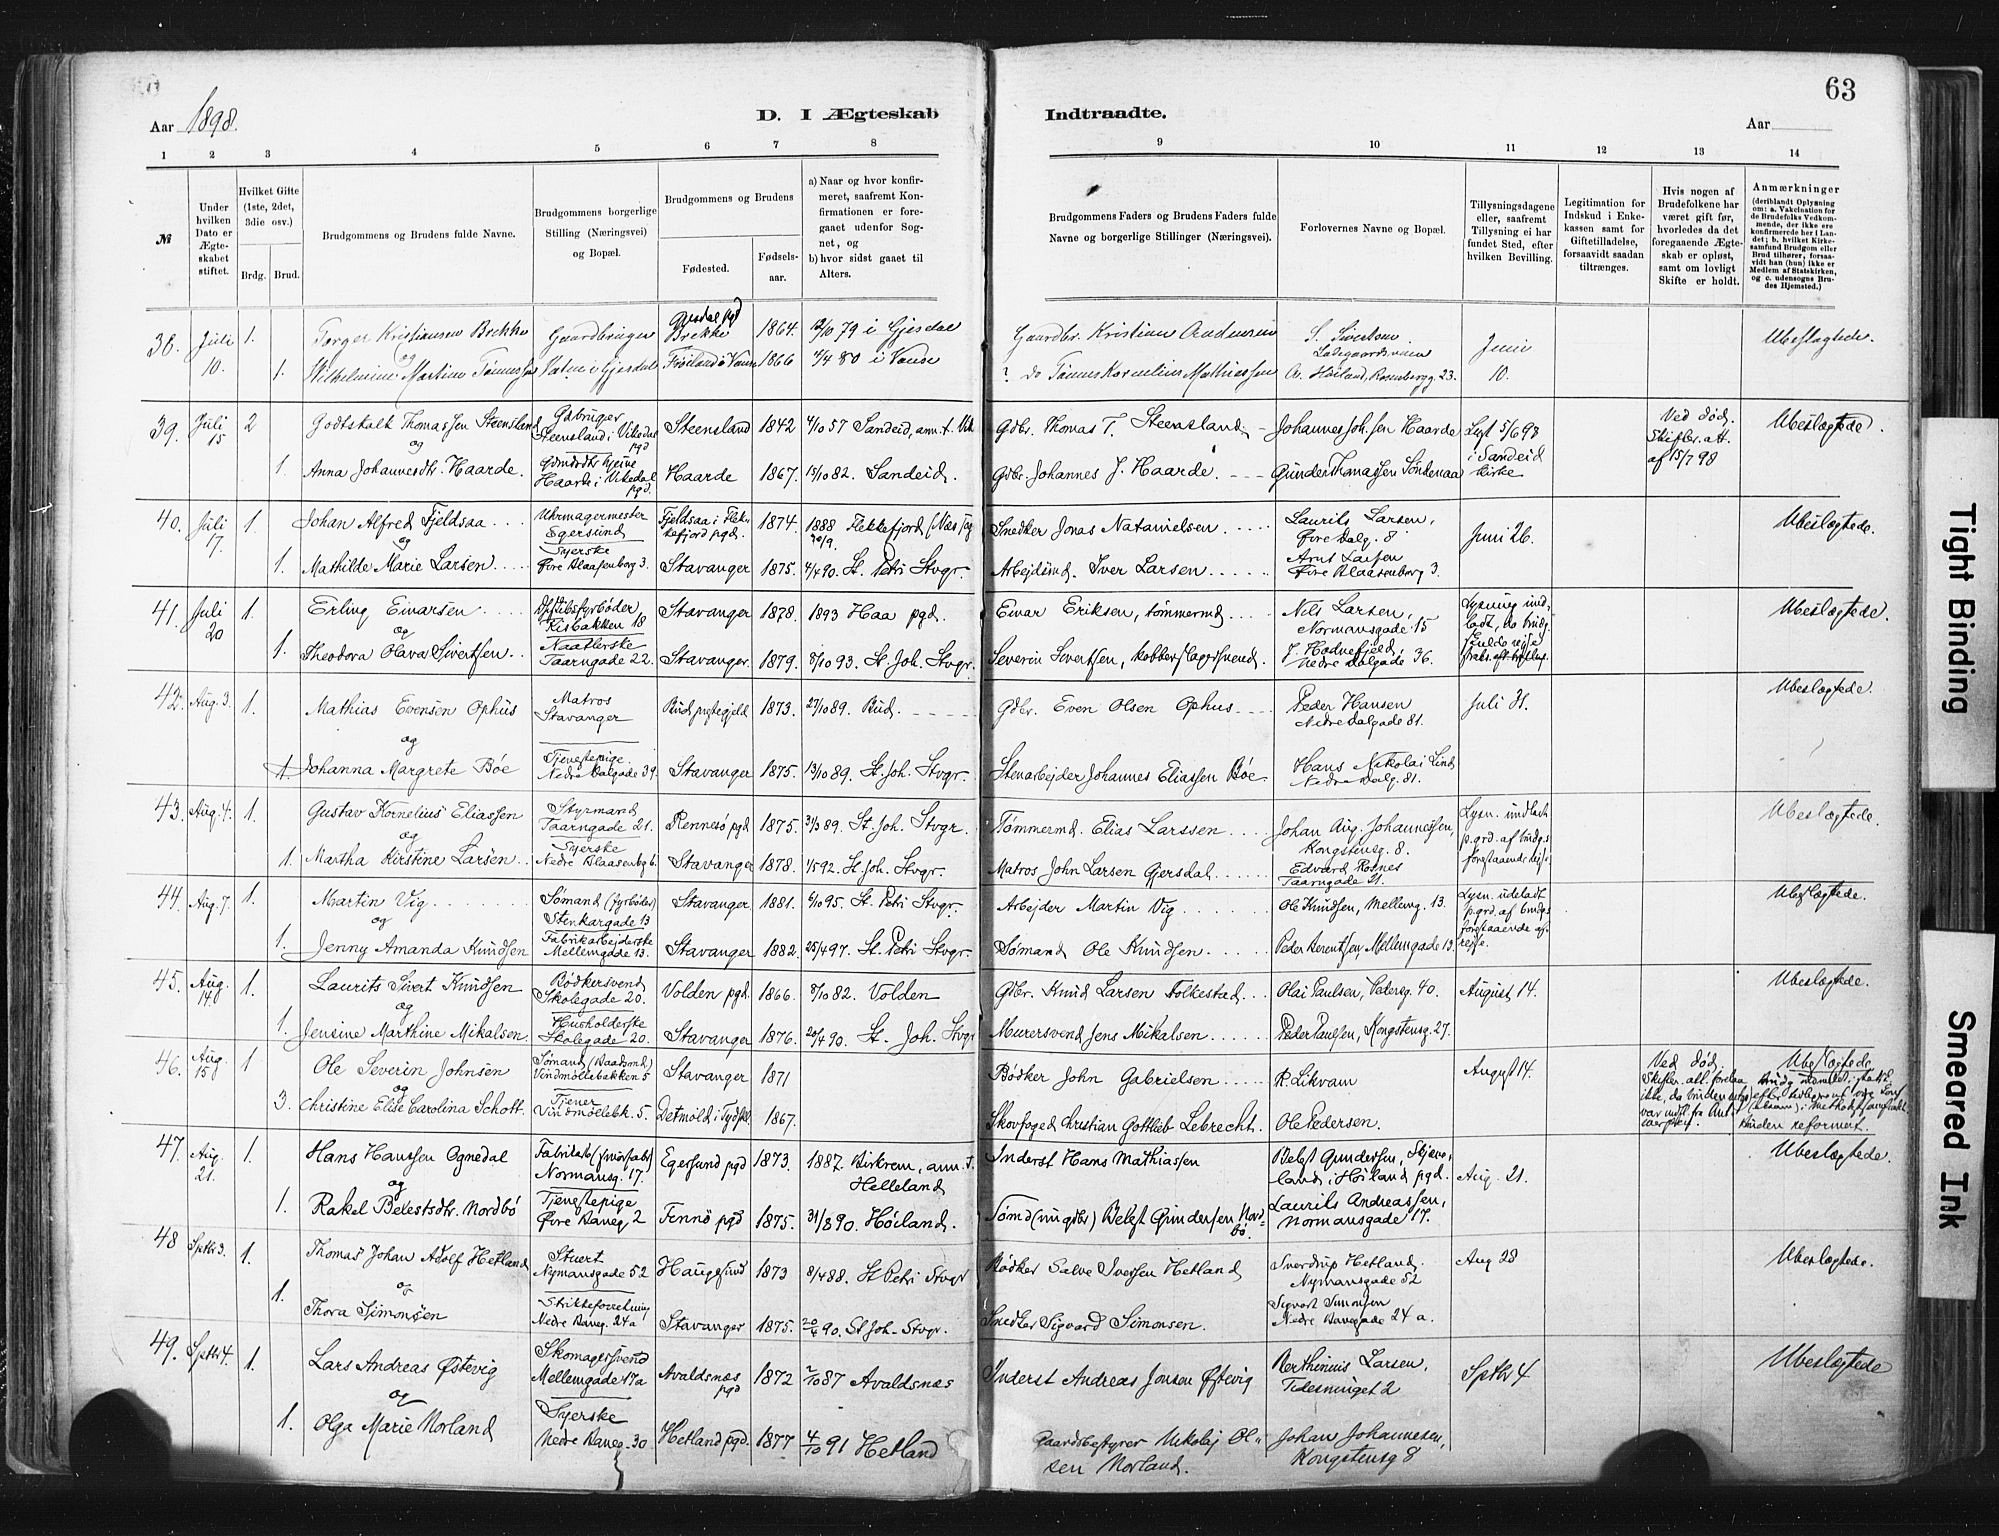 63
Aar 1898.
D. I Ægteskab Indtraadte.
Aar
1 2 3 4 5 6 7 8 9 10 11 12 13 14
№
Under hvilken Dato er Ægteskabet stiftet.
Hvilket Gifte (1ste, 2det, 3die osv.)
Brdg. Brud.
Brudgommens og Brudens fulde Navne.
Brudgommens borgerlige Stilling (Næringsvei) og Bopæl.
Brudgommens og Brudens
Fødested. Fødselsaar.
a) Naar og hvor konfirmeret, saafremt Konfirmationen er foregaaet udenfor Sognet, og
b) hvor sidst gaaet til Alters.
Brudgommens Faders og Brudens Faders fulde Navne og borgerlige Stillinger (Næringsvei).
Forlovernes Navne og Bopæl.
Tillysningsdagene eller, saafremt Tillysning ei har fundet Sted, efter hvilken Bevilling.
Legitimation for Indskud i Enkekassen samt for Giftetilladelse, forsaavidt saadan tiltrænges.
Hvis nogen af Brudefolkene har været gift før, hvorledes da det foregaaende Ægteskab er opløst, samt om lovligt Skifte er holdt.
Anmærkninger (deriblandt Oplysning om: a. Vakcination for de Brudefolks Vedkommende, der ikke ere konfirmerede her i Landet; b. hvilket Kirkesamfund Brudgom eller Brud tilhører, forsaavidt han (hun) ikke er Medlem af Statskirken, og c. udensogns Brudes Hjemsted.)
38. Juli 10. 1. Torger Kristiansen Brekke Gaardbruger Gjesdal pgd Brekke 1864. 12/10 79 i Gjesdal Gaardbr. Kristian Audensen S. Sivertsen Ladegaardsveien Juni 10. Ubeslægtede.
og
1. Wilhelmine Martine Tønnessen i Gjesdal 1866 4/4 80 i Vanse ? do Tønnes Kornelius Mathiassen Høiland, Rosenbergg. 23.
39. Juli 15 2 Godtskalk Thomassen Steensland Gdbruger Steensland i Vikedal pgd Steensland 1842 4/10 57 Sandeid, Gdbr. Thomas T. Steensland Johannes Joh.sen Haarde Lyst 5/6 98 i Sandeid Kirke Ved død. Skiftr. att. af 15/7 98 Ubeslægtede.
og
1. Anna Johannesdtr. Haarde. Haarde i Vikedal pgd. Haarde 1867. 15/10 82. Sandeid. Gdbr. Johannes J. Haarde. Gunder Thomassen Søndenaa
40. Juli 17. 1. Johan Alfred Fjeldsaa Uhrmagermester Egersund Fjeldsaa i Flekkefjord pgd. 1874. 1888 Flekkefjord Snedker Jonas Natanielsen Laurits Larsen, Øvre Dalg. 8 Juni 26. Ubeslægtede.
og
1. Mathilde Marie Larsen Syerske Øvre Blaasenborg 3. Stavanger 1875. 4/4 90. St. Petri Stvgr. Arbeidsmd. Iver Larsen Arnt Larsen Øvre Blaasenborg 3.
41. Juli 20 1. Erling Einarsen Dpskibsfyrbøder, Risbakken 18 Stavanger 1878. 1893 Haa pgd. Einar Eriksen, tømmermd. Nils Larsen, Normansgade 15 Ubeslægtede.
og
1. Theodora Olava Sivertsen Taarngade 22. Stavanger. 1879. 8/10 93. St. Joh. Stvgr. Severin Sivertsen, kobberslagersvend. J. Hodnefjeld, Nedre Dalgade 36.
42. Aug. 3. 1. Mathias Evensen Ophus Matros Stavanger Bud prestegjeld 1873. 27/10 89. Bud. Gdbr. Even Olsen Ophus Peder Hansen Nedre Dalgade 81. Juli 31. Ubeslægtede.
og
1. Johanna Margrete Bøe Tjenestepige Nedre Dalgade 39. Stavanger 1875. 13/10 89. St. Joh. Stvgr. Stenarbejder Johannes Eliassen Bøe Hans Nikolai Lind Nedre Dalg. 81.
43. Aug. 4. 1. Gustav Kornelius Eliassen Styrmand Taarngade 21. Rennesø pgd 1875. 31/3 89. St. Joh. Stvgr. Tømmermd. Elias Larssen Johan Aug. Johannessen, Kongstensg. 8. Lysn. undladt p. grd. af brudg.s forestaaende rejse. Ubeslægtede.
og
1. Martha Kirstine Larsen Syerske Nedre Blaasenbg 6. Stavanger 1878. 1/5 92. St. Joh. Stvgr. Matros John Larsen Gjersdal Edvard Rosnes Taarngade 21.
44. Aug. 7. 1. Martin Vig Sømand (fyrbøder) Stenkargade 13 Stavanger 1881. 6/10 95. St. Petri Stvgr. Arbejder Martin Vig Ole Knudsen, Mellemg. 13. Lysn. udeladt p. grd. af brudg.s forestaaende afrejse. Ubeslægtede.
og
1. Jenny Amanda Knudsen Fabrikarbejderske Mellemgade 13. Stavanger 1882. 25/4 97. St. Petri Stvgr. Sømand Ole Knudsen Peder Berentsen, Mellemgade 13.
45. Aug. 14. 1. Laurits Sivert Knudsen Bødkersvend Skolegade 20. Volden pgd. 1866. 8/10 82. Volden Gdbr. Knud Larsen Folkestad Olai Paulsen, Pedersg. 40. August 14. Ubeslægtede.
og
1. Jensine Marthine Mikalsen. Husholderske Skolegade 20. Stavanger 1876. 20/4 90. St. Joh. Stvgr Murersvend Jens Mikalsen Peder Paulsen, Kongstensg. 27.
46. Aug. 15. 1 Ole Severin Johnsen Sømand (Baadsmd) Vindmøllebakken 5 Stavanger 1871 Bødker John Gabrielsen R. Likvam August 14. Ved død. Ubeslægtede
og
3. Christine Elise Carolina Schott. Tjener Vindmøllebk. 5. Detmold i Tydskl. 1867. Skovfoged Christian Gottlieb Lebrecht. Ole Pedersen. Bruden reformert.
47. Aug. 21. 1. Hans Hansen Ognedal Normansg. 17. Egersund pgd 1873. 1887. Birkrem, ann. t. Helleland Inderst Hans Mathiassen Belest Gundersen, Skjæveland i Høiland pgd. Aug. 21. Ubeslægtede.
og
1. Rakel Belestsdtr. Nordbø Tjenestepige Øvre Baneg. 2 Finnø pgd 1875. 31/8 90. Høiland. Tømd (nu gdbr) Belest Gundersen Nordbø. Laurits Andreassen, Normansgade 17.
48 Sptbr 3. 1. Thomas Johan Adolf Hetland Stuert Nymansgade 52 Haugesund 1873 8/4 88. St Petri Stvgr Bødker Salve Iversen Hetland Sverdrup Hetland. Nymansgade 52 Aug 28 Ubeslægtede.
og
1. Thora Simonsen Strikkeforretning Nedre Baneg. 24a Stavanger 1875. 20/4 90. St Joh. Stvgr. Snedker Sigvard Simonsen. Sigvart Simonsen Nedre Banegade 24 a.
49. Sptbr 4. 1. Lars Andreas Østevig Skomagersvend Mellemgade 17a Avaldsnæs pgd 1872 2/10 87 Avaldsnæs Inderst Andreas Jonsen Østevig Berthinius Larsen, Tidesninget 2 Sptbr 4 Ubeslægtede
og
1. Olga Marie Norland Syerske Nedre Baneg. 30 Hetland pgd. 1877 4/10 91 Hetland Gaardsbestyrer Nikolaj Olsen Norland. Johan Johannesen, Kongstensg 8
Tight Binding
Smeared Ink